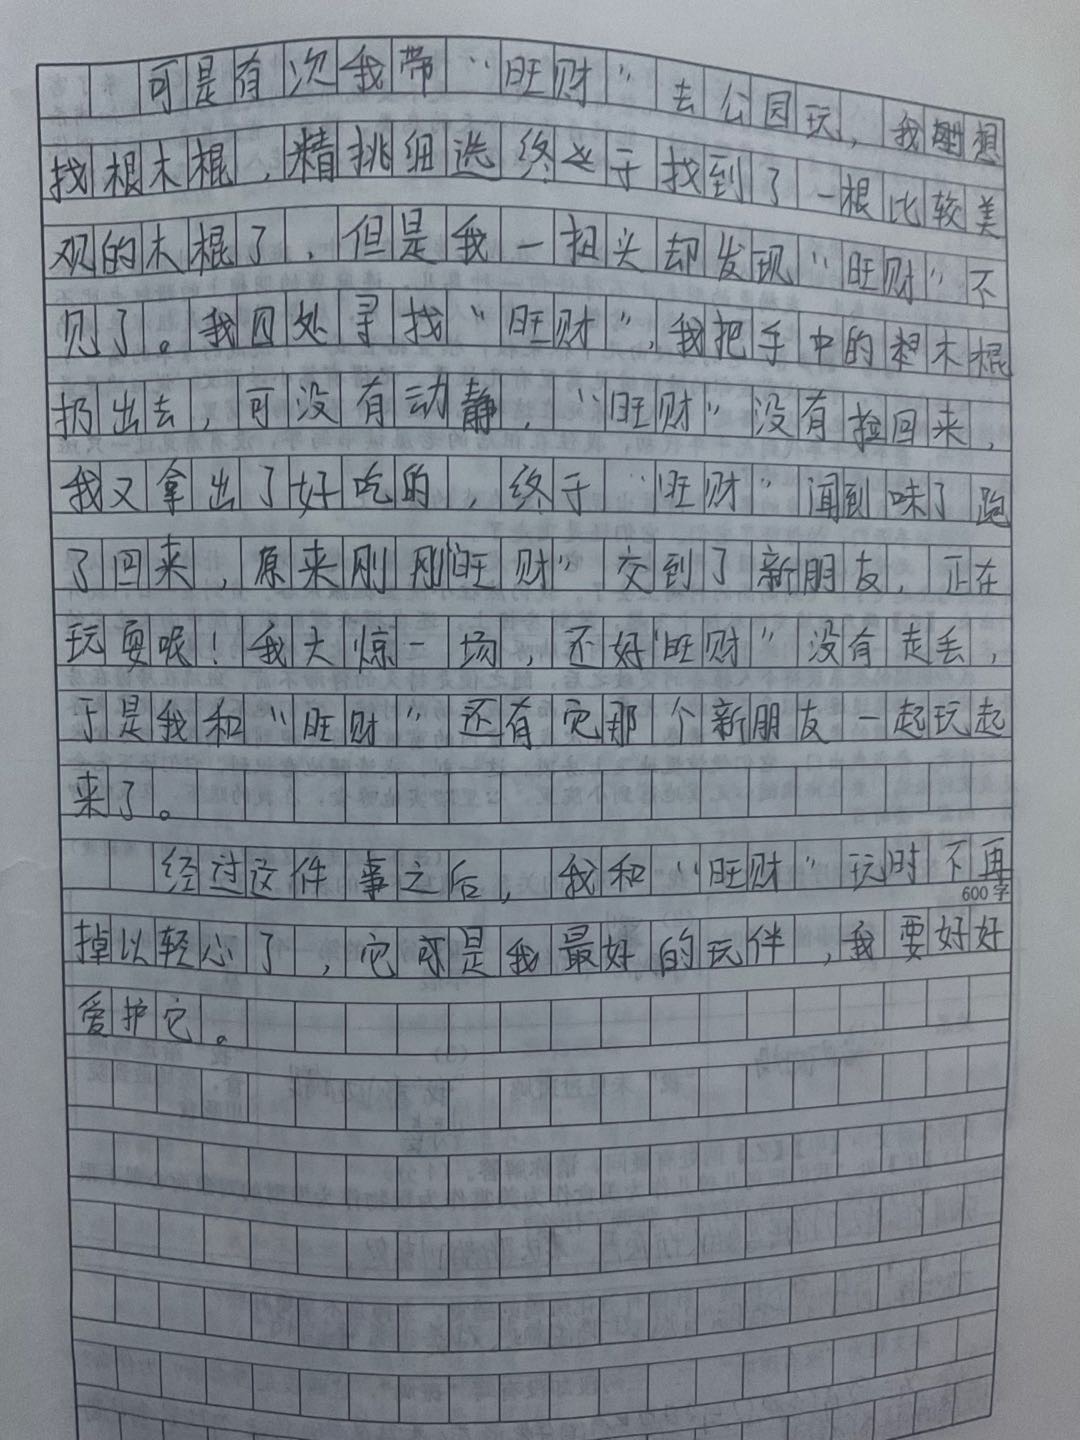 可是有次我带“旺财”去公园玩，我想
找根木棍，精挑细选终于找到了一根比较美
观的木棍了，但是我一扭头却发现“旺财”不
见了。我四处寻找“旺财”，我把手中的木棍
扔出去，可没有动静，“旺财”没有捡回来，
我又拿出了好吃的，终于“旺财”闻到味了跑
了回来，原来刚刚“旺财”交到了新朋友，正在
玩耍呢！我大惊一场，还好“旺财”没有走丢，
于是我和“旺财”还有它那个新朋友一起玩起
来了。
经过这件事之后，我和“旺财”玩时不再
600字
掉以轻心了，它可是我最好的玩伴，我要好好
爱护它。